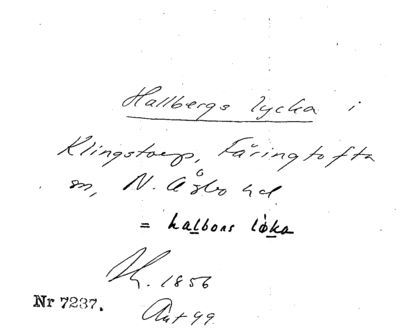 Hallbergs lycka i
Klingstorp, Färingtofta
sn, N. Åsbo hd
= halbons löka
1856
Nr 7237.
Ant 49